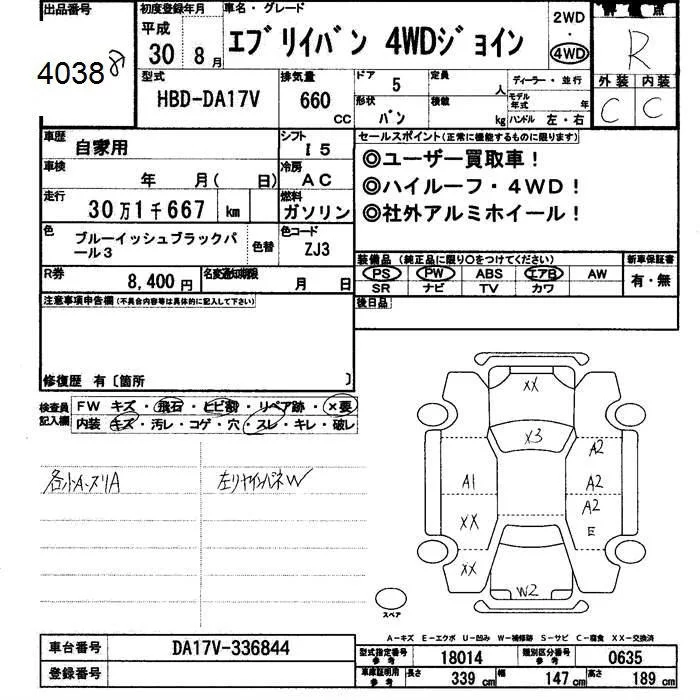 出品番号
40388
初度登録年月
平成
30年 8月
車名・グレード
エブリイバン 4WDジョイン
2WD
・
4WD
評価点
R
外装 内装
C C
型式
HBD-DA17V
排気量
660
CC
ドア 5
定員 人
形状 バン
積載 kg
ディーラー・並行
モデル年式 年
ハンドル 左・右
車歴
自家用
シフト
I5
車検
年 月( 日)
冷房
AC
走行
30万1千667 km
燃料
ガソリン
色
ブルーイッシュブラックパール3
色替
色コード
ZJ3
R券
8,400円
名変通知期限
月 日
セールスポイント(正常に機能するものに限ります)
◎ユーザー買取車!
◎ハイルーフ・4WD!
◎社外アルミホイール!
装備品(純正品に限り○をつけてください)
PS PW ABS エアB AW
SR ナビ TV カワ
新車保証書
有・無
後日品
注意事項申告欄(不具合内容等は具体的に記入して下さい)
修復歴 有〔箇所 〕
検査員記入欄
FW キズ・飛石・ヒビ割・リペア跡・×要
内装 キズ・汚レ・コゲ・穴・スレ・キレ・破レ
各小A・ズリA
左リヤインパネW
XX
X3
A2
A1
A2
A2
XX
E
XX
W2
スペア
A-キズ E-エクボ U-凹み W-補修跡 S-サビ C-腐食 XX-交換済
車台番号
DA17V-336844
登録番号
型式指定番号 参考
18014
類別区分番号 参考
0635
車庫証明用 参考
長さ 339 cm
幅 147 cm
高さ 189 cm